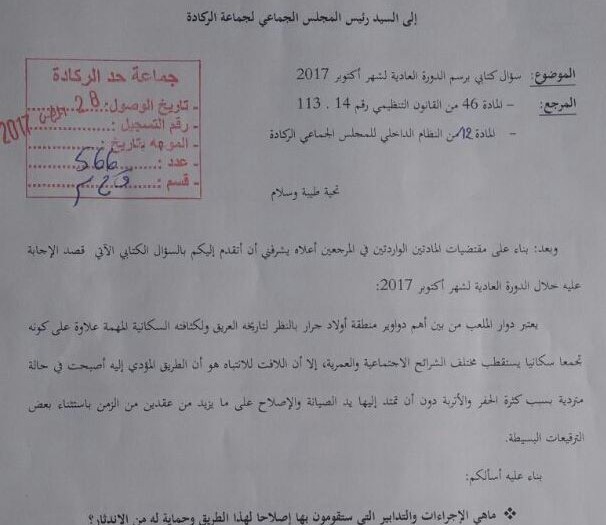 إلى السيد رئيس المجلس الجماعي لجماعة الركادة
الموضوع: سؤال كتابي برسم الدورة العادية لشهر أكتوبر 2017
المرجع: – المادة 46 من القانون التنظيمي رقم 14 . 113
– المادة 12 من النظام الداخلي للمجلس الجماعي الركادة
جماعة حد الركادة
- تاريخ الوصول: 28 2017
- رقم التسجيل:
- الموجه بتاريخ:
- عدد: 566
- قسم:
تحية طيبة وسلام
وبعد: بناء على مقتضيات المادتين الواردتين في المرجعين أعلاه يشرفني أن أتقدم إليكم بالسؤال الكتابي الآتي قصد الإجابة
عليه خلال الدورة العادية لشهر أكتوبر 2017:
يعتبر دوار الملعب من بين أهم دواوير منطقة أولاد جرار بالنظر لتاريخه العريق ولكثافته السكانية المهمة علاوة على كونه
تجمعا سكانيا يستقطب مختلف الشرائح الاجتماعية والعمرية، إلا أن اللافت للانتباه هو أن الطريق المؤدي إليه أصبحت في حالة
متردية بسبب كثرة الحفر والأتربة دون أن تمتد إليها يد الصيانة والإصلاح على ما يزيد من عقدين من الزمن باستثناء بعض
الترقيعات البسيطة.
بناء عليه أسألكم:
❖ ماهي الإجراءات والتدابير التي ستقومون بها إصلاحا لهذا الطريق وحماية له من الاندثار؟